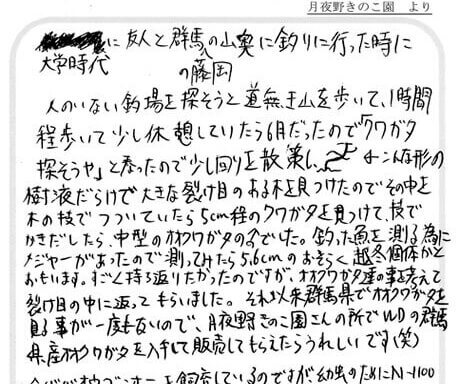 月夜野きのこ園 より
に友人と群馬の山奥に釣りに行った時に
大学時代 の藤岡
人のいない釣場を探そうと道無き山を歩いて、1時間
程歩いて少し休憩していたら6月だったので「クワガタ
探そうや」となったので少し回りを散策し、 ←こんな形の
樹液だらけで大きな裂け目のある木を見つけたのでその中を
木の枝でつついていたら5cm程のクワガタを見つけて、枝で
かきだしたら、中型のオオクワガタの♀でした。釣った魚を測る為に
メジャーがあったので測ってみたら5.6cmのおそらく越冬個体かと
おもいます。すごく持ち返りたかったのですが、オオクワガタ達の事を考えて
裂け目の中に返ってもらいました。それ以来群馬県でオオクワガタを
見る事が一度もないので、月夜野きのこ園さんの所でWDの群馬
県産オオクワガタを入手して販売してもらえたらうれしいです(笑)
を飼育しているのですが幼虫のためにN-1100